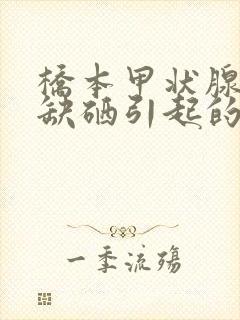 橋本甲状腺
缺硒引起的
一季流殇